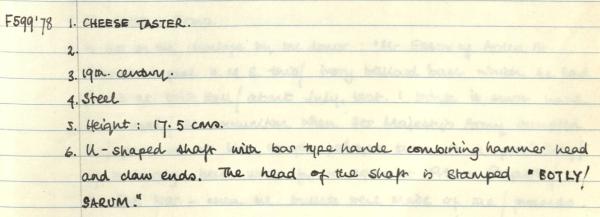 F599'78 1. CHEESE TASTER.
2.
3. 19th. century.
4. Steel
5. Height: 17.5 cms.
6. U-shaped shaft with bar type hande combining hammer head
and claw ends. The head of the shaft is stamped "BOTLY/
SARUM."